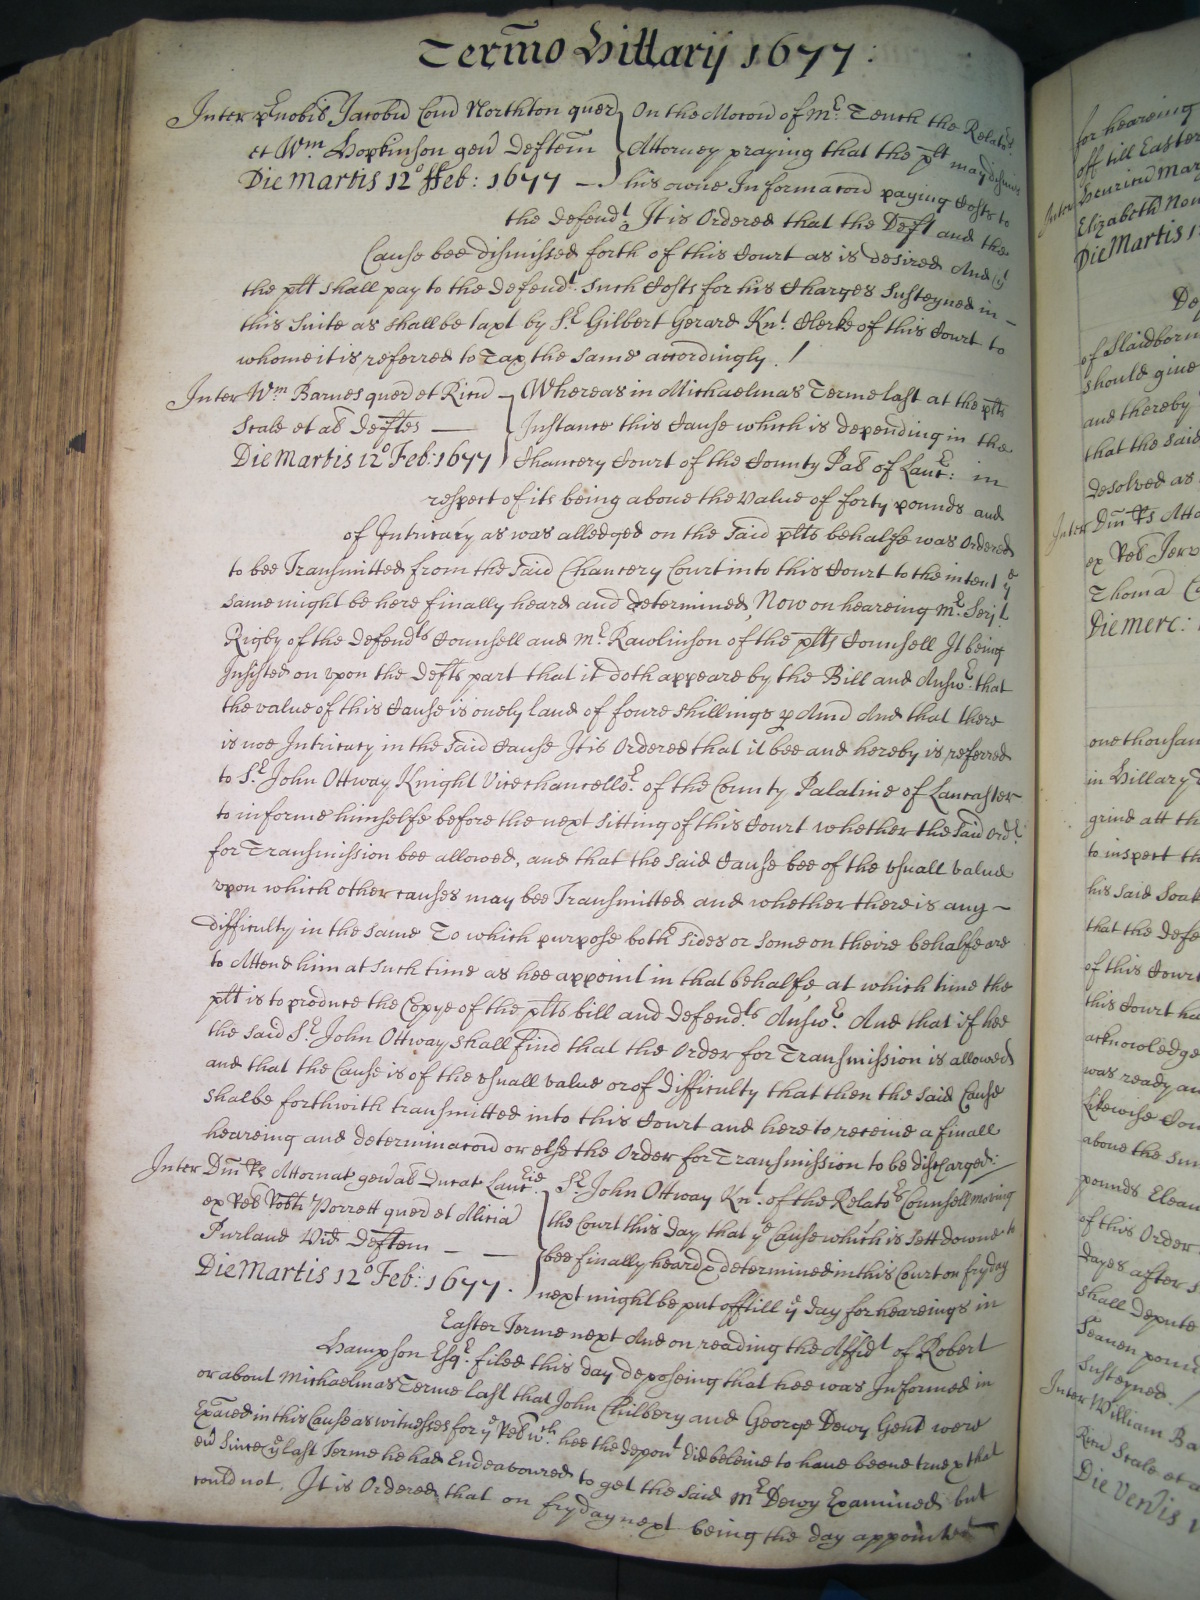 Termo Hillarij 1677:
Inter prnobil Jacobu Com Northton quer
et Wm Hopkinson gen Deftem
Die Martis 12o ffeb: 1677
On the Mocon of Mr. Tench the Relators
Attorney praying that the plt may dismis
his owne Informacon paying Costs to
the defendt. It is Ordered that the Deft and the
Cause bee dismissed forth of this Court as is desired And yt
the plt shall pay to the defendt. such Costs for his Charges Susteyned in
this Suite as shall be taxt by Sr. Gilbert Gerard Knt. Clerke of this Court to
whome it is referred to Tax the same accordingly /
Inter Wm Barnes quer et Ricu
Scale et al Deftes
Die Martis 12o Feb: 1677
Whereas in Michaelmas Terme last at the plts
Instance this Cause which is depending in the
Chancery Court of the County Pal of Lancr: in
respect of its being above the value of forty pounds and
of Intricacy as was alledged on the said plts behalfe was Ordered
to bee Transmitted from the said Chancery Court into this Court to the intent ye
same might be here finally heard and determined, Now on heareing Mr. Serjt
Rigby of the Defendts Counsell and Mr. Rawlinson of the plts Counsell It being
Insisted on vpon the Defts part that it doth appeare by the Bill and Answr. that
the value of this Cause is onely land of foure shillings p Annu And that there
is noe Intricacy in the said Cause It is Ordered that it bee and hereby is referred
to Sr. John Ottway Knight Vicechancellor. of the County Palatine of Lancaster
to informe himselfe before the next sitting of this Court whether the said Ordr.
for Transmission bee allowed, and that the said Cause bee of the vsuall value
vpon which other causes may bee Transmitted and whether there is any
difficulty in the same To which purpose both sides or some on theire behalfe are
to Attend him at such time as hee appoint in that behalfe, at which time the
plt is to produce the Copye of the plts bill and defendts. Answr. And that if hee
the said Sr. John Ottway shall find that the Order for Transmission is allowed
and that the Cause is of the vsuall value or of difficulty that then the said Cause
shalbe forthwith transmitted into this Court and here to receive a finall
heareing and determinacon or else the Order for Transmission to be discharged:
Inter Dm Rs Attornat genal Ducat Lancrie
ex Rel Robti Porrett quer et Alicia
Purland Vid Deftem
Die Martis 12o Feb: 1677.
Sr. John Ottway Knt. of the Relators Counsell moving
the Court this Day that ye Cause which is sett downe to
bee finally heard & determined in this Court on fryday
next might be put off till ye day for heareings in
Easter Terme next And on reading the Affidt of Robert
Hampson Esqr. filed this day deposeing that hee was Informed in
or about Michaelmas Terme last that John Chilbery and George Dewy Gent were
Exaied in this Cause as witnesses for ye Relr wch. hee the depont did beleive to have beene true & that
ev since ye last Terme he had Endeavoured to get the said Mr Dewy Examined but
could not. It is Ordered that on fryday next being the day appointed
for heareing
off till Easter
Inter Henricu Mar
Elizabeth
Die Martis 1
of Slaidborn
should give
and thereby
that the said
desolved as
Inter Dm Rs Atto
ex Rel Jerv
Thoma
Die merc:
one thousan
in Hillary
grind att th
to inspect th
his said Soak
that the defe
of this Court
this Court ha
acknowledge
was ready an
Likewise
above the sum
pounds
of this Order
dayes after
shall depute
Seaven pound
Susteyned. /
Inter William Ba
Ricu Scale et a
Die Venis 1